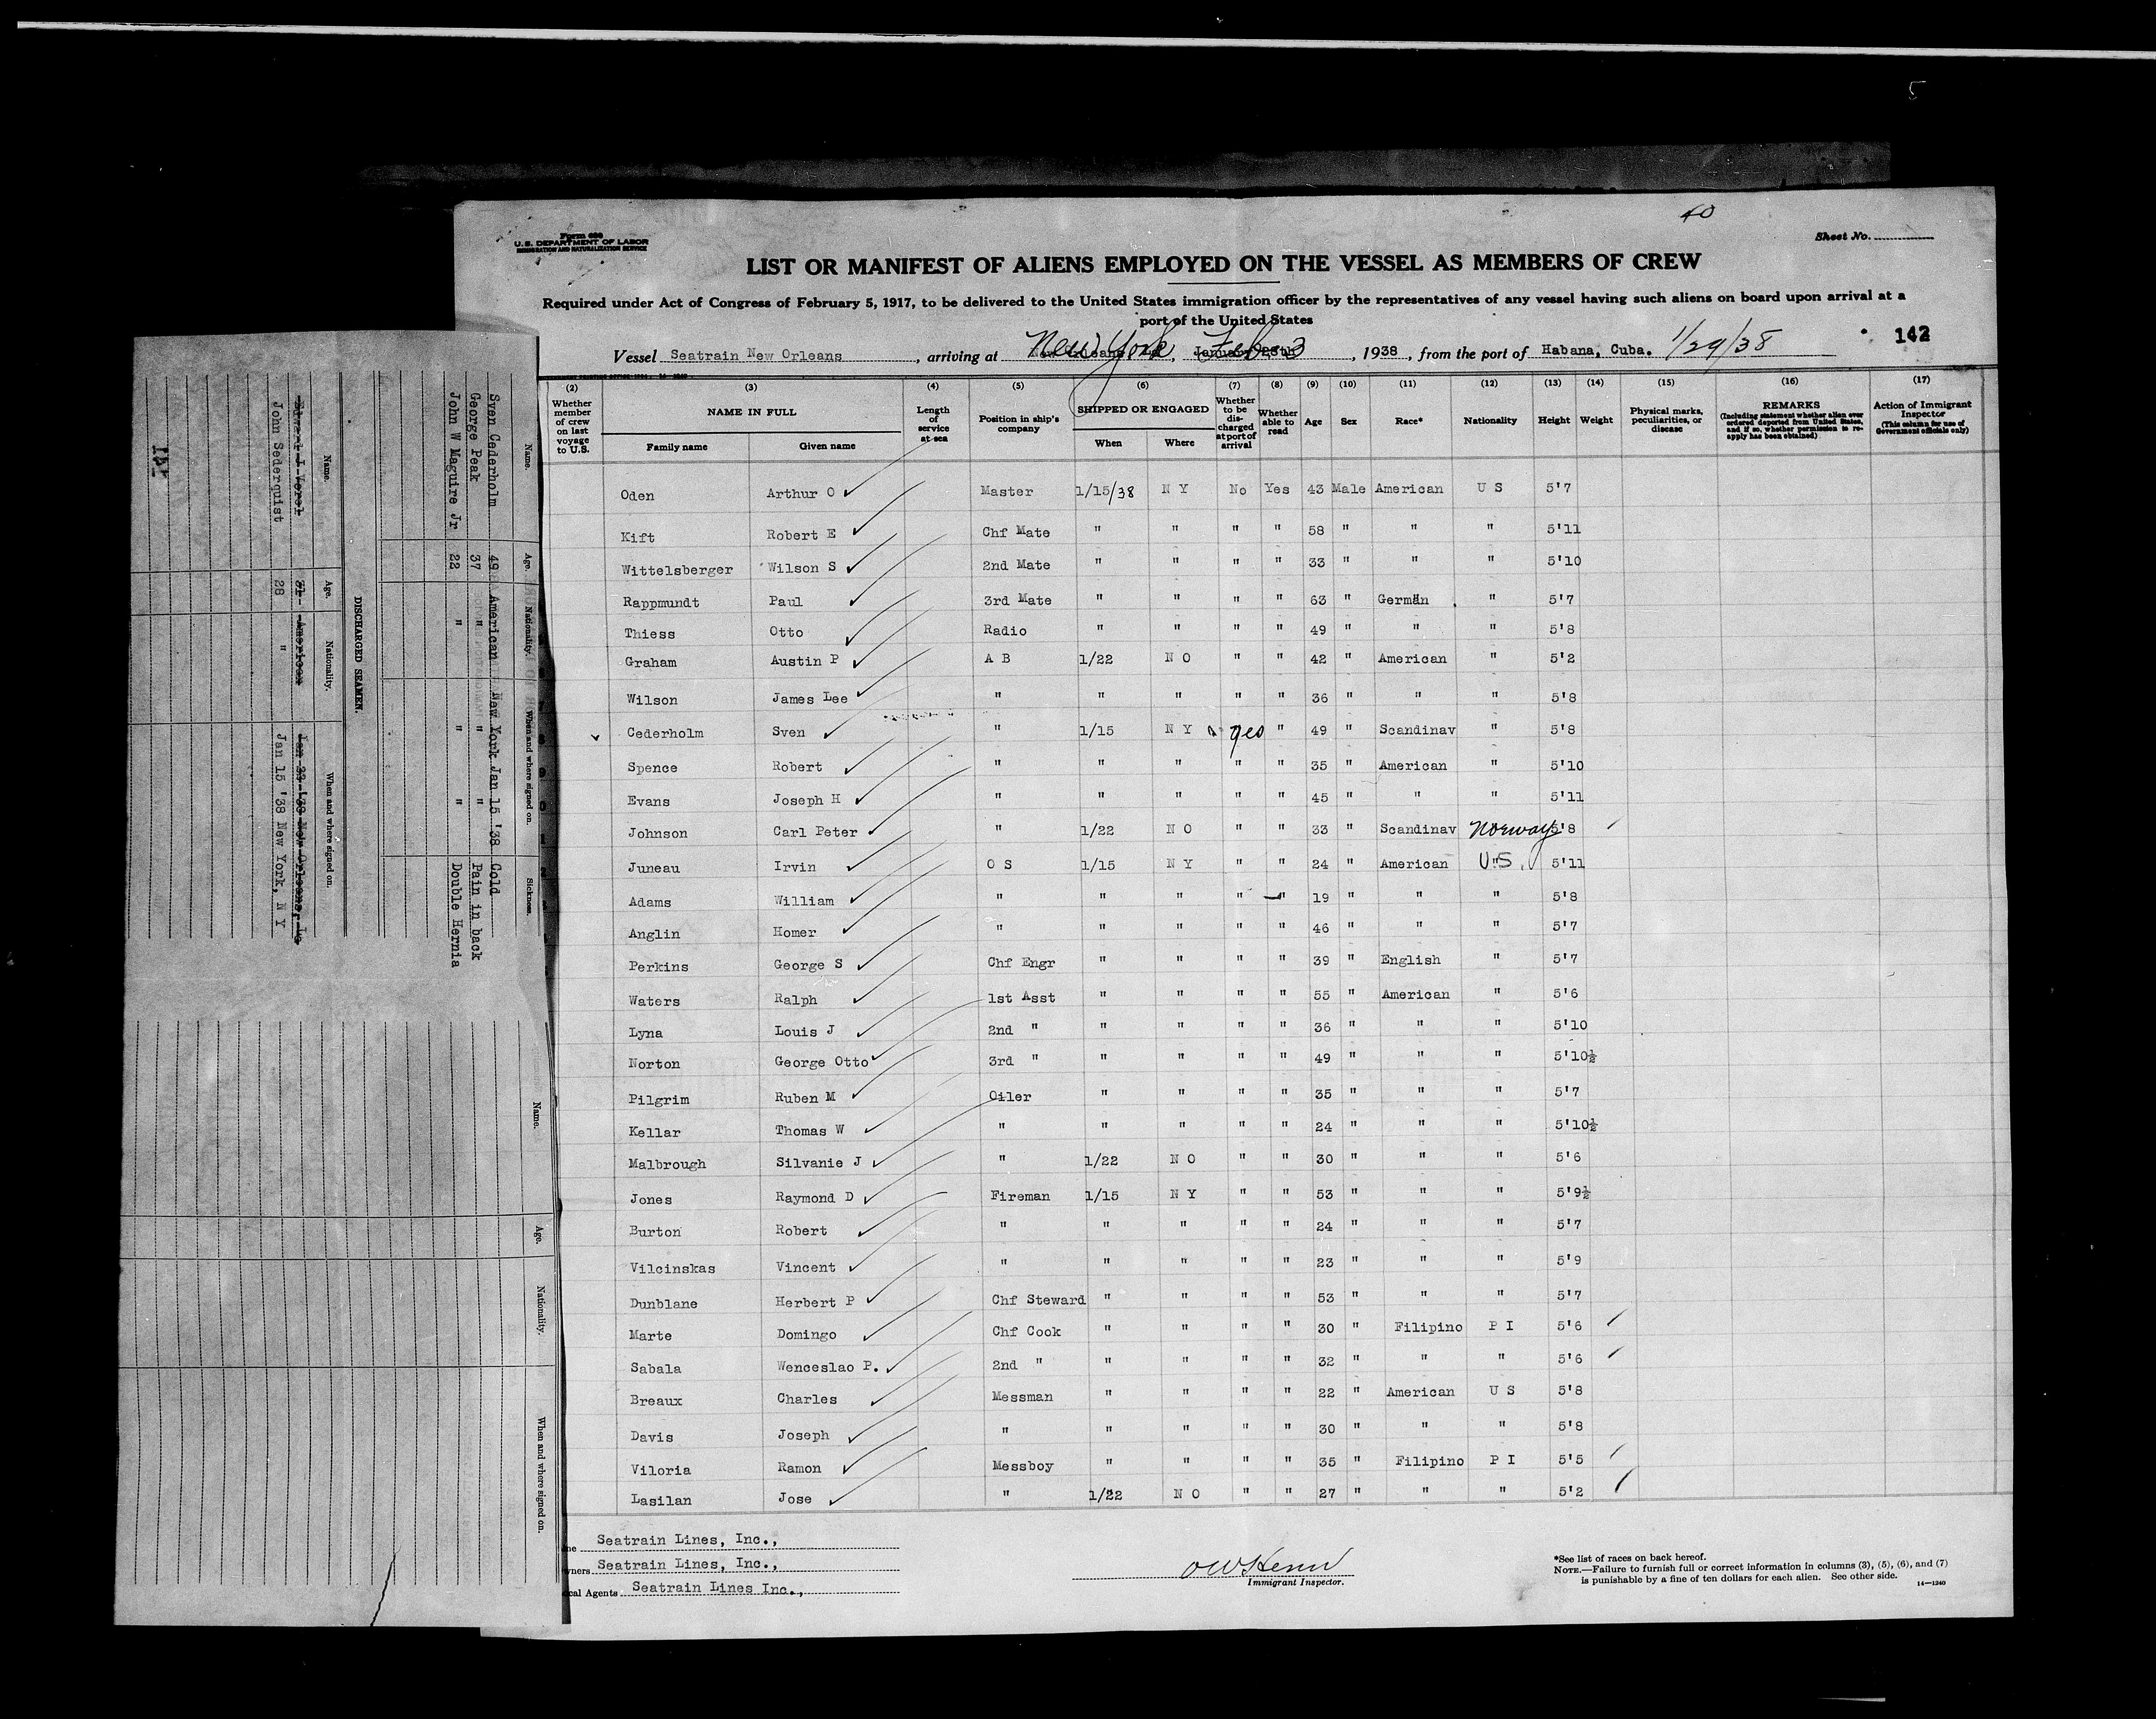 5
40
Form 680
U.S. DEPARTMENT OF LABOR
IMMIGRATION AND NATURALIZATION SERVICE
Sheet No.
LIST OR MANIFEST OF ALIENS EMPLOYED ON THE VESSEL AS MEMBERS OF CREW
Required under Act of Congress of February 5, 1917, to be delivered to the United States immigration officer by the representatives of any vessel having such aliens on board upon arrival at a
port of the United States
Vessel Seatrain New Orleans, arriving at New York, Feb. 3, 1938, from the port of Habana, Cuba. 1/29/38 142
(2) (3) (4) (5) (6) (7) (8) (9) (10) (11) (12) (13) (14) (15) (16) (17)
Whether member of crew on last voyage to U.S. NAME IN FULL Family name Given name Length of service at sea Position in ship's company SHIPPED OR ENGAGED When Where Whether to be discharged at port of arrival Whether able to read Age Sex Race* Nationality Height Weight Physical marks, peculiarities, or disease REMARKS (Including statement whether alien ever ordered deported from United States, and if so, whether permission to reapply has been obtained) Action of Immigrant Inspector (This column for use of Government officials only)
Oden Arthur O Master 1/15/38 N Y No Yes 43 Male American U S 5'7
Kift Robert E Chf Mate " " " " 58 " " " 5'11
Wittelsberger Wilson S 2nd Mate " " " " 33 " " " 5'10
Rappmundt Paul 3rd Mate " " " " 63 " German " 5'7
Thiess Otto Radio " " " " 49 " " " 5'8
Graham Austin P A B 1/22 N O " " 42 " American " 5'2
Wilson James Lee " " " " " 36 " " " 5'8
Cederholm Sven " 1/15 N Y yes " 49 " Scandinav " 5'8
Spence Robert " " " " " 35 " American " 5'10
Evans Joseph H " " " " " 45 " " " 5'11
Johnson Carl Peter " 1/22 N O " " 33 " Scandinav Norway 5'8
Juneau Irvin O S 1/15 N Y " " 24 " American U.S. 5'11
Adams William " " " " " 19 " " " 5'8
Anglin Homer " " " " " 46 " " " 5'7
Perkins George S Chf Engr " " " " 39 " English " 5'7
Waters Ralph 1st Asst " " " " 55 " American " 5'6
Lyna Louis J 2nd " " " " " 36 " " " 5'10
Norton George Otto 3rd " " " " " 49 " " " 5'10½
Pilgrim Ruben M Oiler " " " " 35 " " " 5'7
Kellar Thomas W " " " " " 24 " " " 5'10½
Malbrough Silvanie J " 1/22 N O " " 30 " " " 5'6
Jones Raymond D Fireman 1/15 N Y " " 53 " " " 5'9½
Burton Robert " " " " " 24 " " " 5'7
Vilcinskas Vincent " " " " " 23 " " " 5'9
Dunblane Herbert P Chf Steward " " " " 53 " " " 5'7
Marte Domingo Chf Cook " " " " 30 " Filipino P I 5'6
Sabala Wenceslao P. 2nd " " " " " 32 " " " 5'6
Breaux Charles Messman " " " " 22 " American U S 5'8
Davis Joseph " " " " " 30 " " " 5'8
Viloria Ramon Messboy " " " " 35 " Filipino P I 5'5
Lasilan Jose " 1/22 N O " " 27 " " " 5'2
Seatrain Lines, Inc.,
wners Seatrain Lines, Inc.,
cal Agents Seatrain Lines Inc.,
Immigrant Inspector.
*See list of races on back hereof.
NOTE.—Failure to furnish full or correct information in columns (3), (5), (6), and (7)
is punishable by a fine of ten dollars for each alien. See other side.
14—1240
Name. Age. Nationality. When and where signed on. Sickness.
Sven Cederholm 49 American New York Jan 15 '38 Cold
George Peak 37 " " " Pain in back
John W Maguire Jr 22 " " " Double Hernia
DISCHARGED SEAMEN.
Name. Age. Nationality. When and where signed on.
31 American Jan 22 '38 New Orleans, La
John Sederquist 28 " Jan 15 '38 New York, N Y
141
Name. Age. Nationality. When and where signed on.